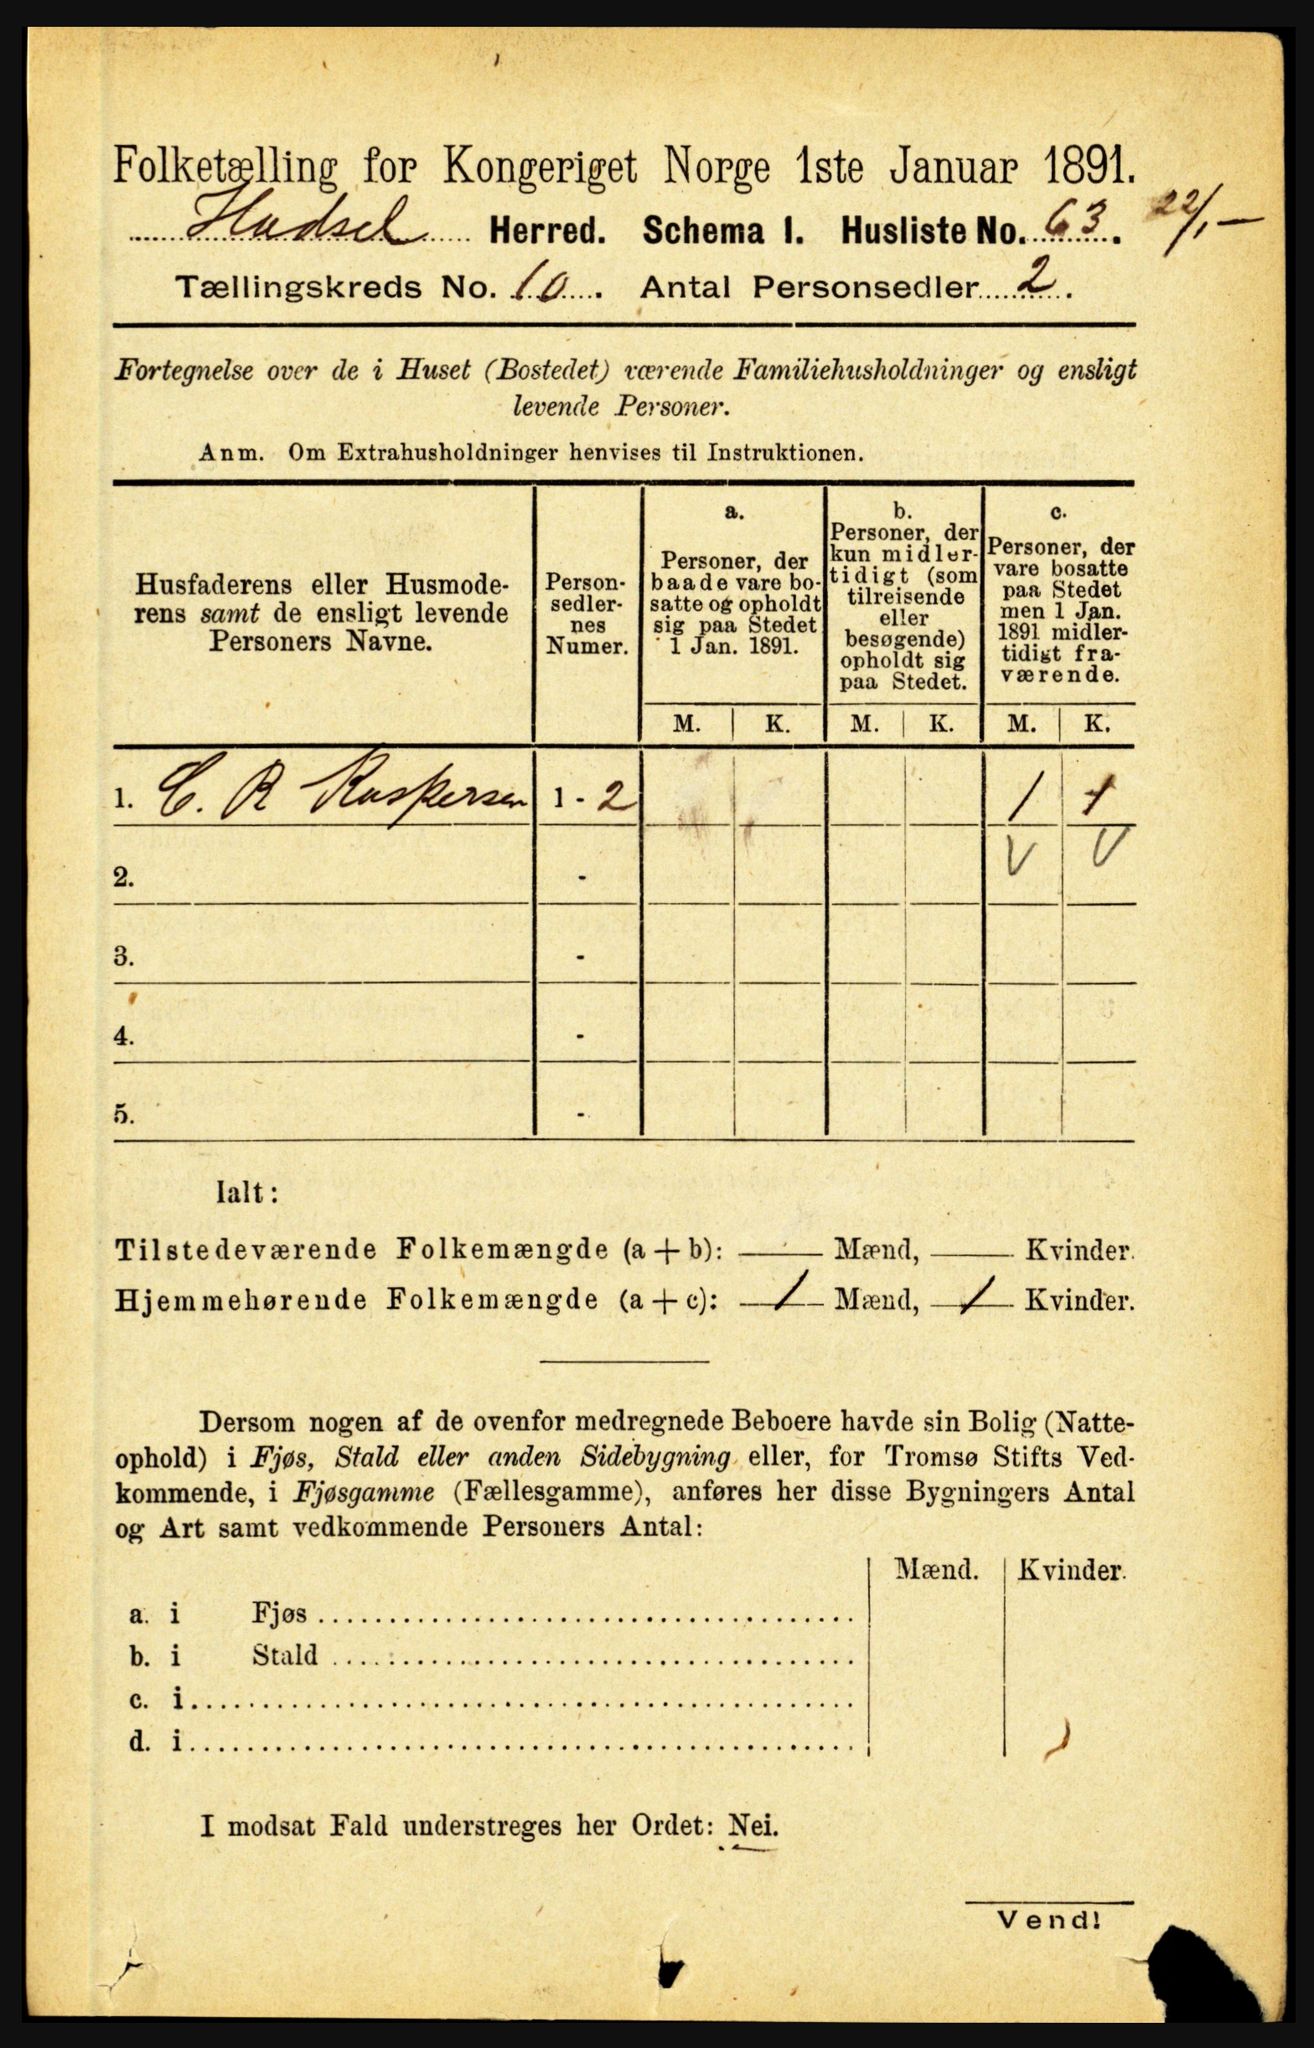 Folketælling for Kongeriget Norge 1ste Januar 1891.
Hadsel Herred. Schema I. Husliste No. 63. 22/1 —
Tællingskreds No. 10. Antal Personsedler 2.
Fortegnelse over de i Huset (Bostedet) værende Familiehusholdninger og ensligt
levende Personer.
Anm. Om Extrahusholdninger henvises til Instruktionen.
Husfaderens eller Husmode-
rens samt de ensligt levende
Personers Navne.
Person-
sedler-
nes
Numer.
a.
Personer, der
baade vare bo-
satte og opholdt
sig paa Stedet
1 Jan. 1891.
b.
Personer, der
kun midler-
tidigt (som
tilreisende
eller
besøgende)
opholdt sig
paa Stedet.
c.
Personer, der
vare bosatte
paa Stedet
men 1 Jan.
1891 midler-
tidigt fra-
værende.
M. K. M. K. M. K.
1. C. R Kaspersen 1 - 2 1 1
2. - V V
3. -
4. -
5. -
Ialt:
Tilstedeværende Folkemængde (a + b): — Mænd, — Kvinder.
Hjemmehørende Folkemængde (a + c): 1 Mænd, 1 Kvinder.
Dersom nogen af de ovenfor medregnede Beboere havde sin Bolig (Natte-
ophold) i Fjøs, Stald eller anden Sidebygning eller, for Tromsø Stifts Ved-
kommende, i Fjøsgamme (Fællesgamme), anføres her disse Bygningers Antal
og Art samt vedkommende Personers Antal:
Mænd. Kvinder.
a. i Fjøs
b. i Stald
c. i
d. i
I modsat Fald understreges her Ordet: Nei.
Vend!